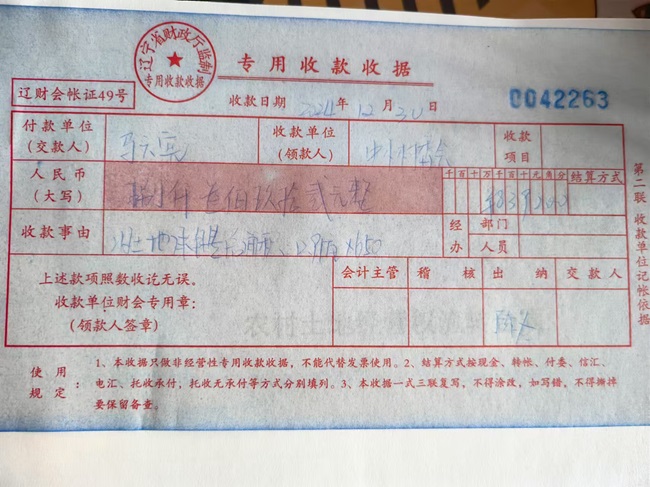 辽宁省财政厅监制
专用收款收据
专用收款收据
辽财会帐证49号
收款日期 2024年12月30日
0042263
付款单位
(交款人)
收款单位
(领款人)
收款
项目
人民币
(大写)
仟 叁佰玖拾贰元整
千百十万千百十元角分
结算方式
收款事由
经办
部门
人员
上述款项照数收讫无误。
收款单位财会专用章:
(领款人签章)
会计主管
稽核
出纳
交款人
第二联 收款单位记帐依据
使用规定:
1、本收据只做非经营性专用收款收据,不能代替发票使用。2、结算方式按现金、转帐、付委、信汇、
电汇、托收承付,托收无承付等方式分别填列。3、本收据一式三联复写,不得涂改,如写错,不得撕掉
要保留备查。